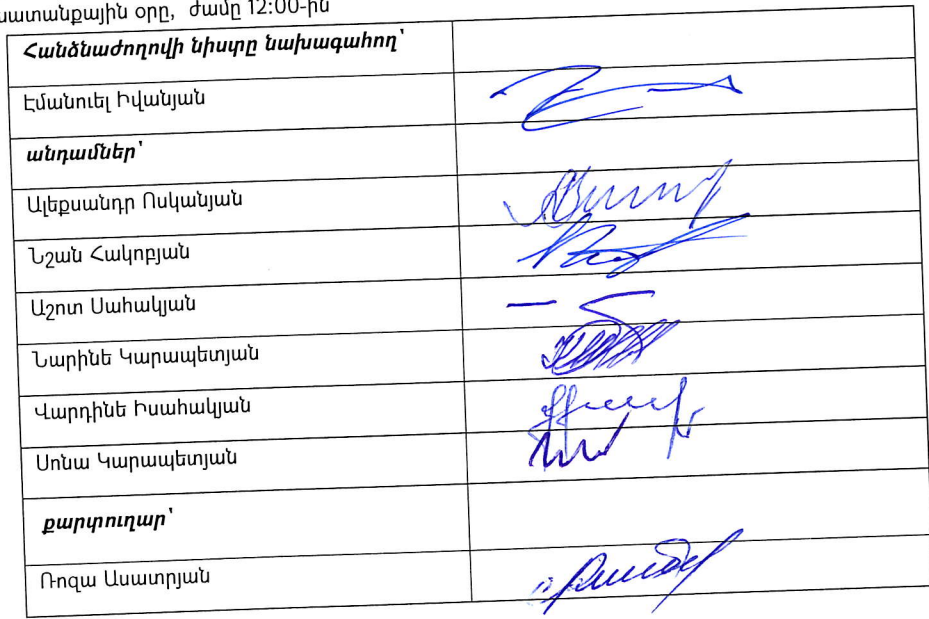 աշխատանքային օրը, ժամը 12:00-ին
Հանձնաժողովի նիստը նախագահող՝
Էմանուել Իվանյան
անդամներ՝
Ալեքսանդր Ոսկանյան
Նշան Հակոբյան
Աշոտ Սահակյան
Նարինե Կարապետյան
Վարդինե Իսահակյան
Սոնա Կարապետյան
քարտուղար՝
Ռոզա Ասատրյան